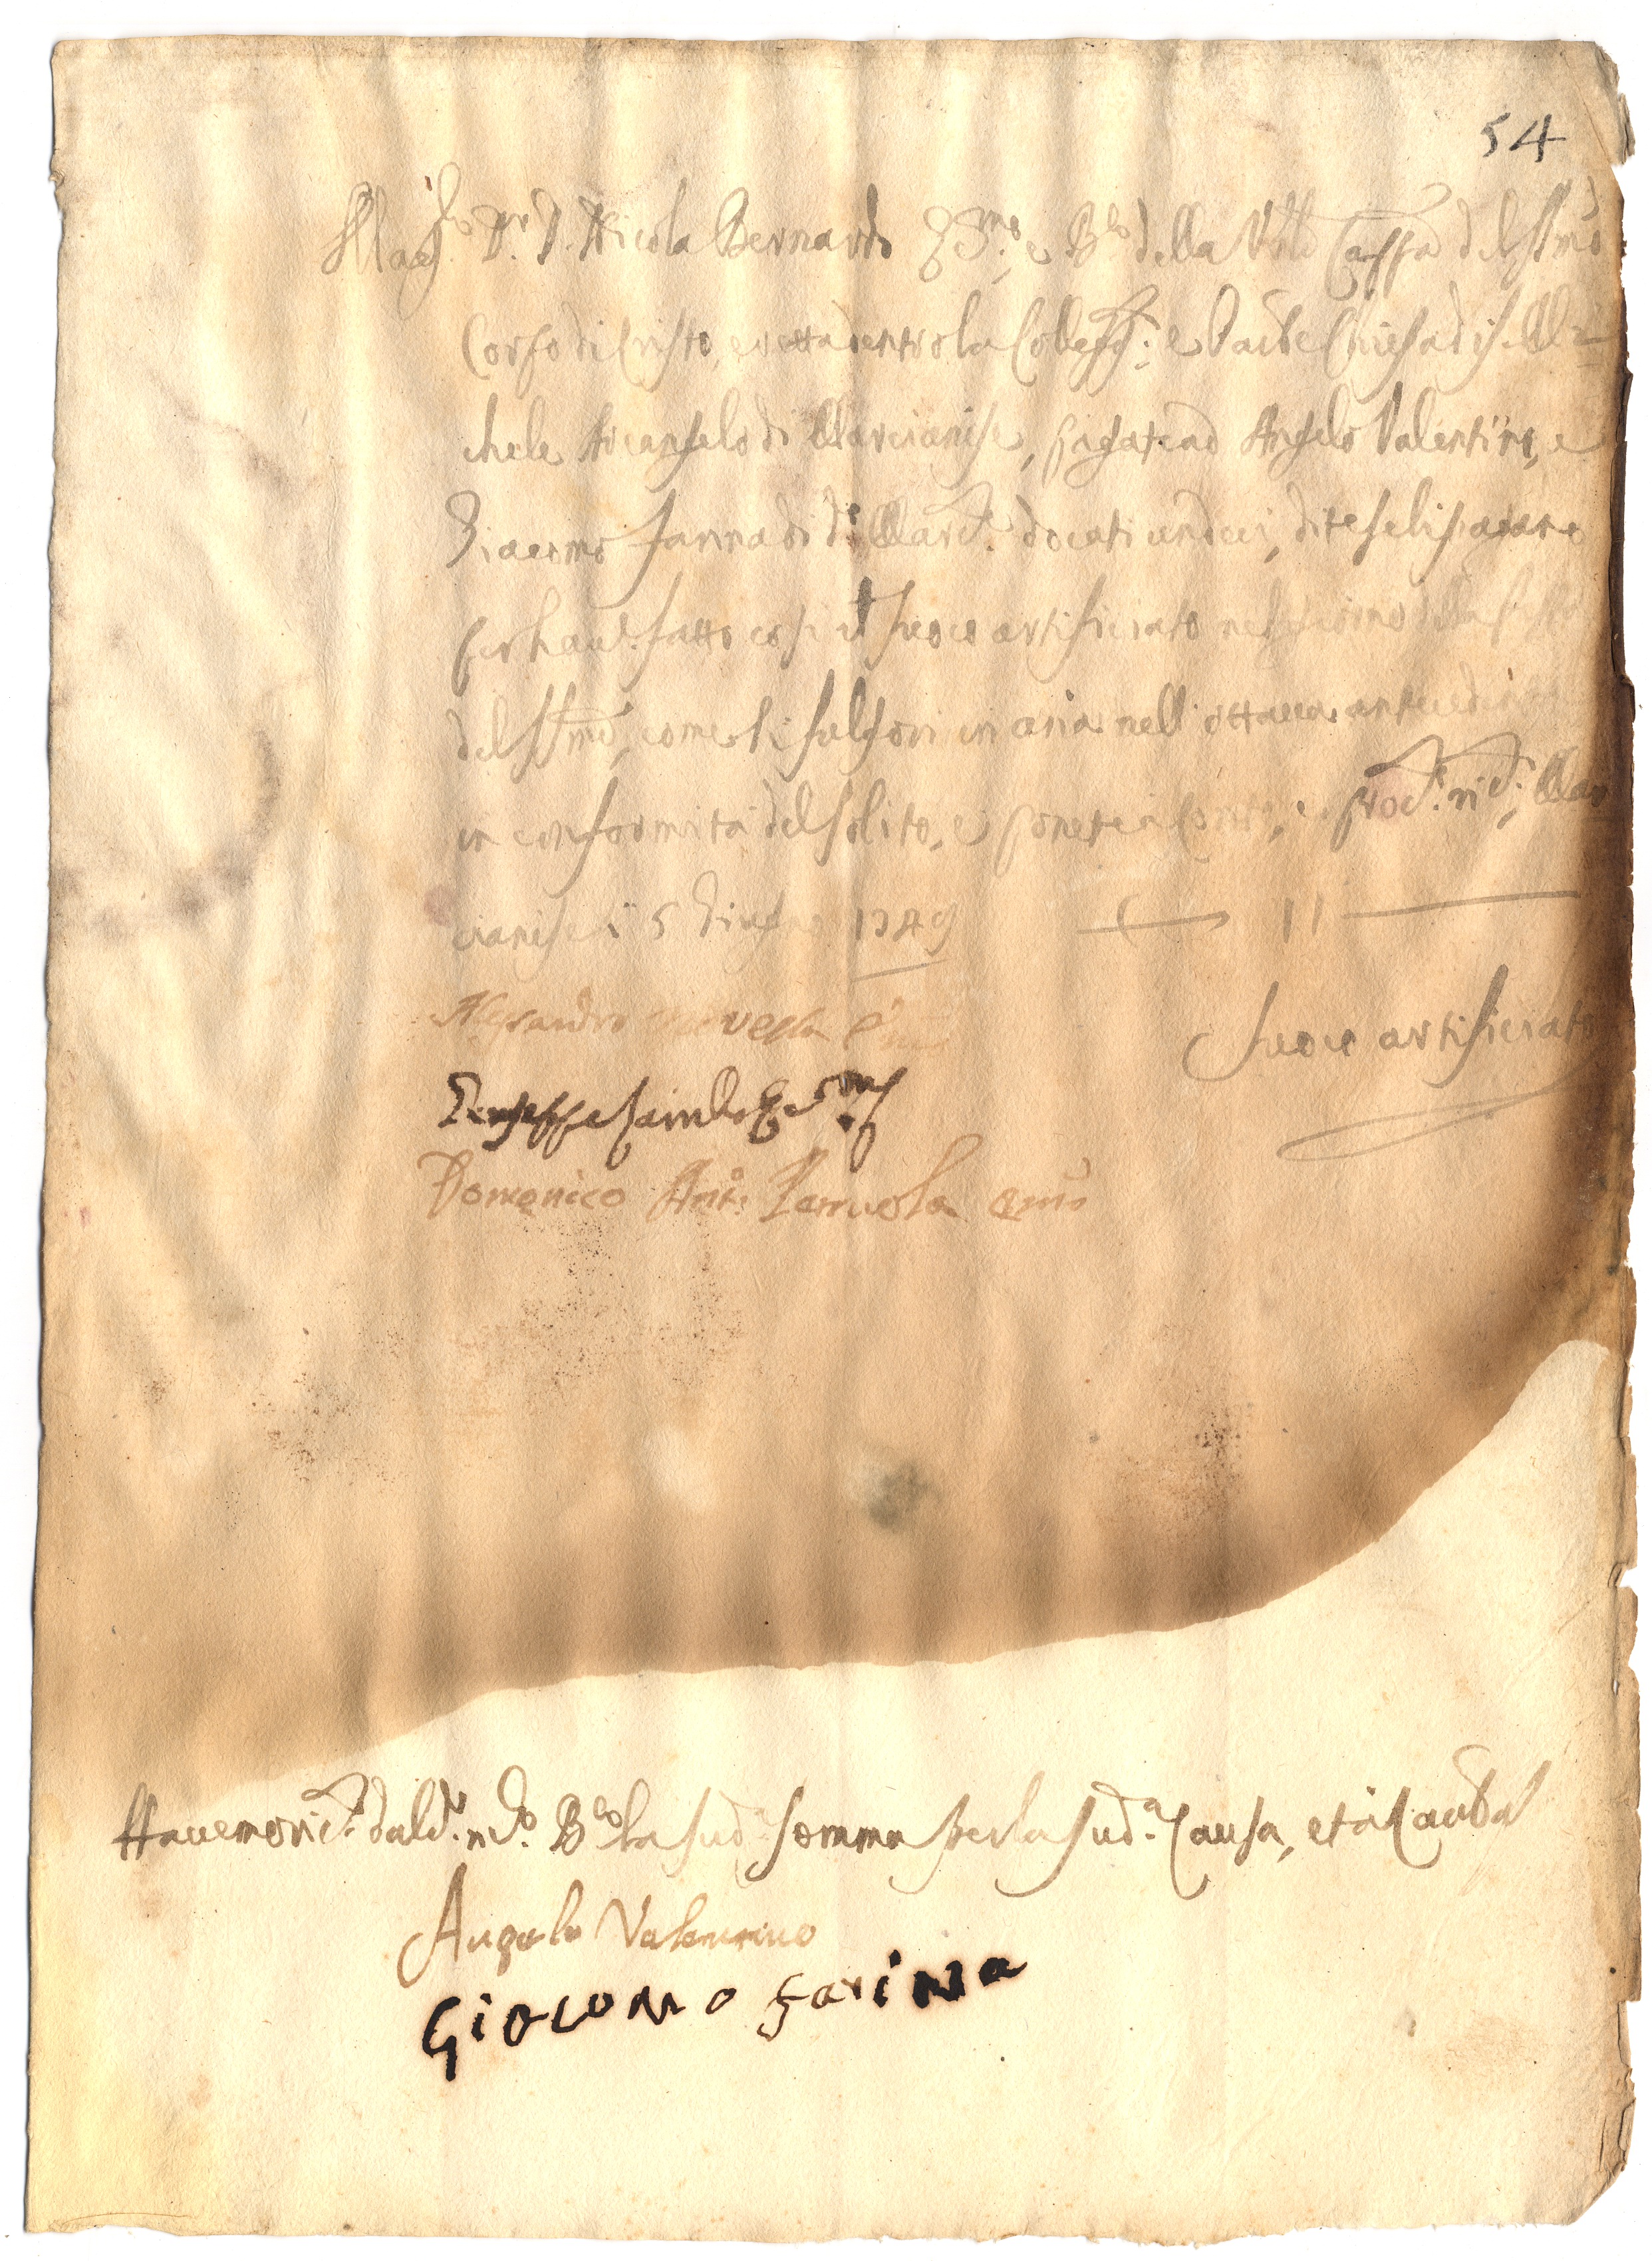 54
Mag.co D.r D. Nicola Bernardo e B.lo della V.le Capp.a del SS.mo
Corpo di Cristo, eretta dentro la Colleg.ta Chiesa di S. Mi=
chele Arcangelo di Marcianise, pagate ad Angelo Valentino, e
Giacomo Farina di d.o Marc.e docati undeci, dite seli pagano
per haver fatto così il fuoco artificiato nel giorno della
del SS.mo, come li fulgori in aria nell' ottava antecedente
in conformità del solito, e ponete a conto, e prod.e ric.a, Mar=
cianise li 5 Giugno 1749 11
Alesandro
Fuoco artificiato
Giuseppe
Domenico Ant.o
Havemo ric.to dal d.o B.lo la sud.a somma per la sud.a causa, et a cautela
Angelo Valentino
Giacomo Farina